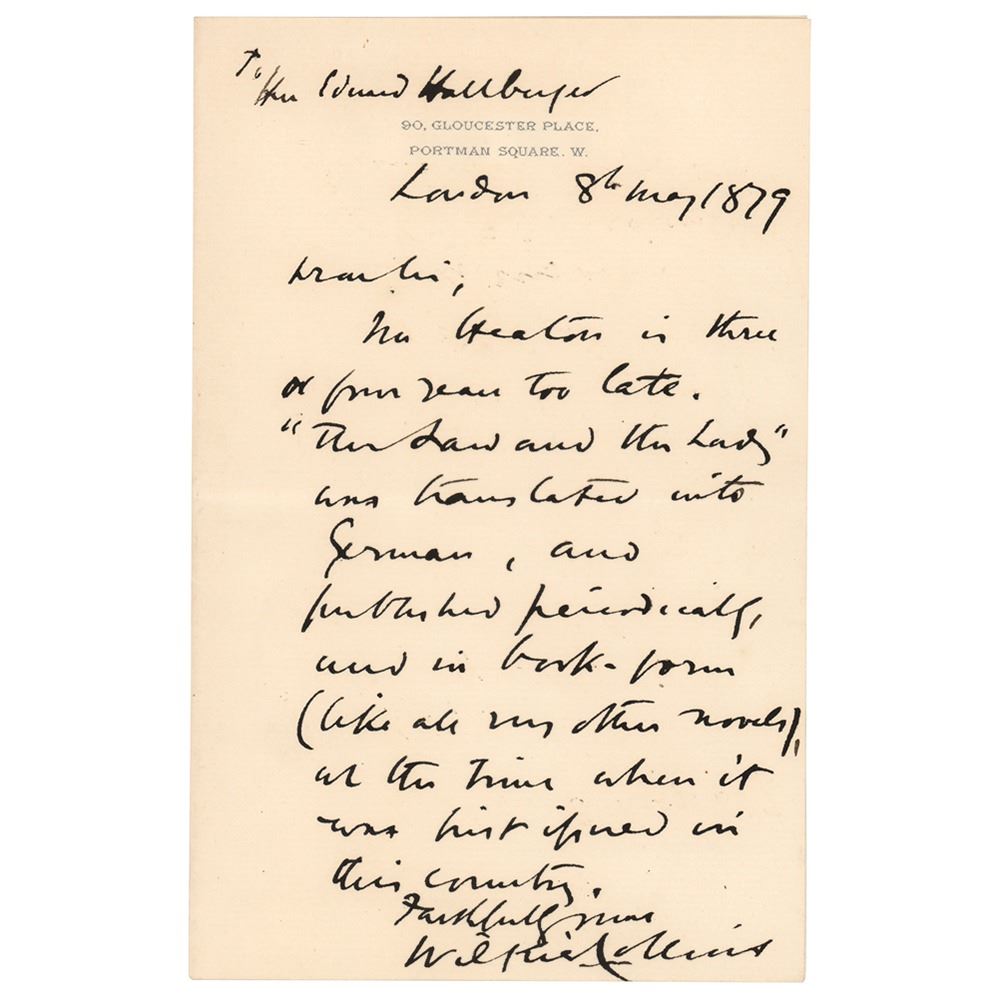 To
Herr Eduard Hallberger
90, GLOUCESTER PLACE,
PORTMAN SQUARE. W.
London 8th May 1879
Dear Sir,
Mr Heaton is three
or four years too late.
"The Law and the Lady"
was translated into
German, and
published periodically,
and in book-form
(like all my other novels),
at the time when it
was first issued in
this country.
Faithfully yours
Wilkie Collins